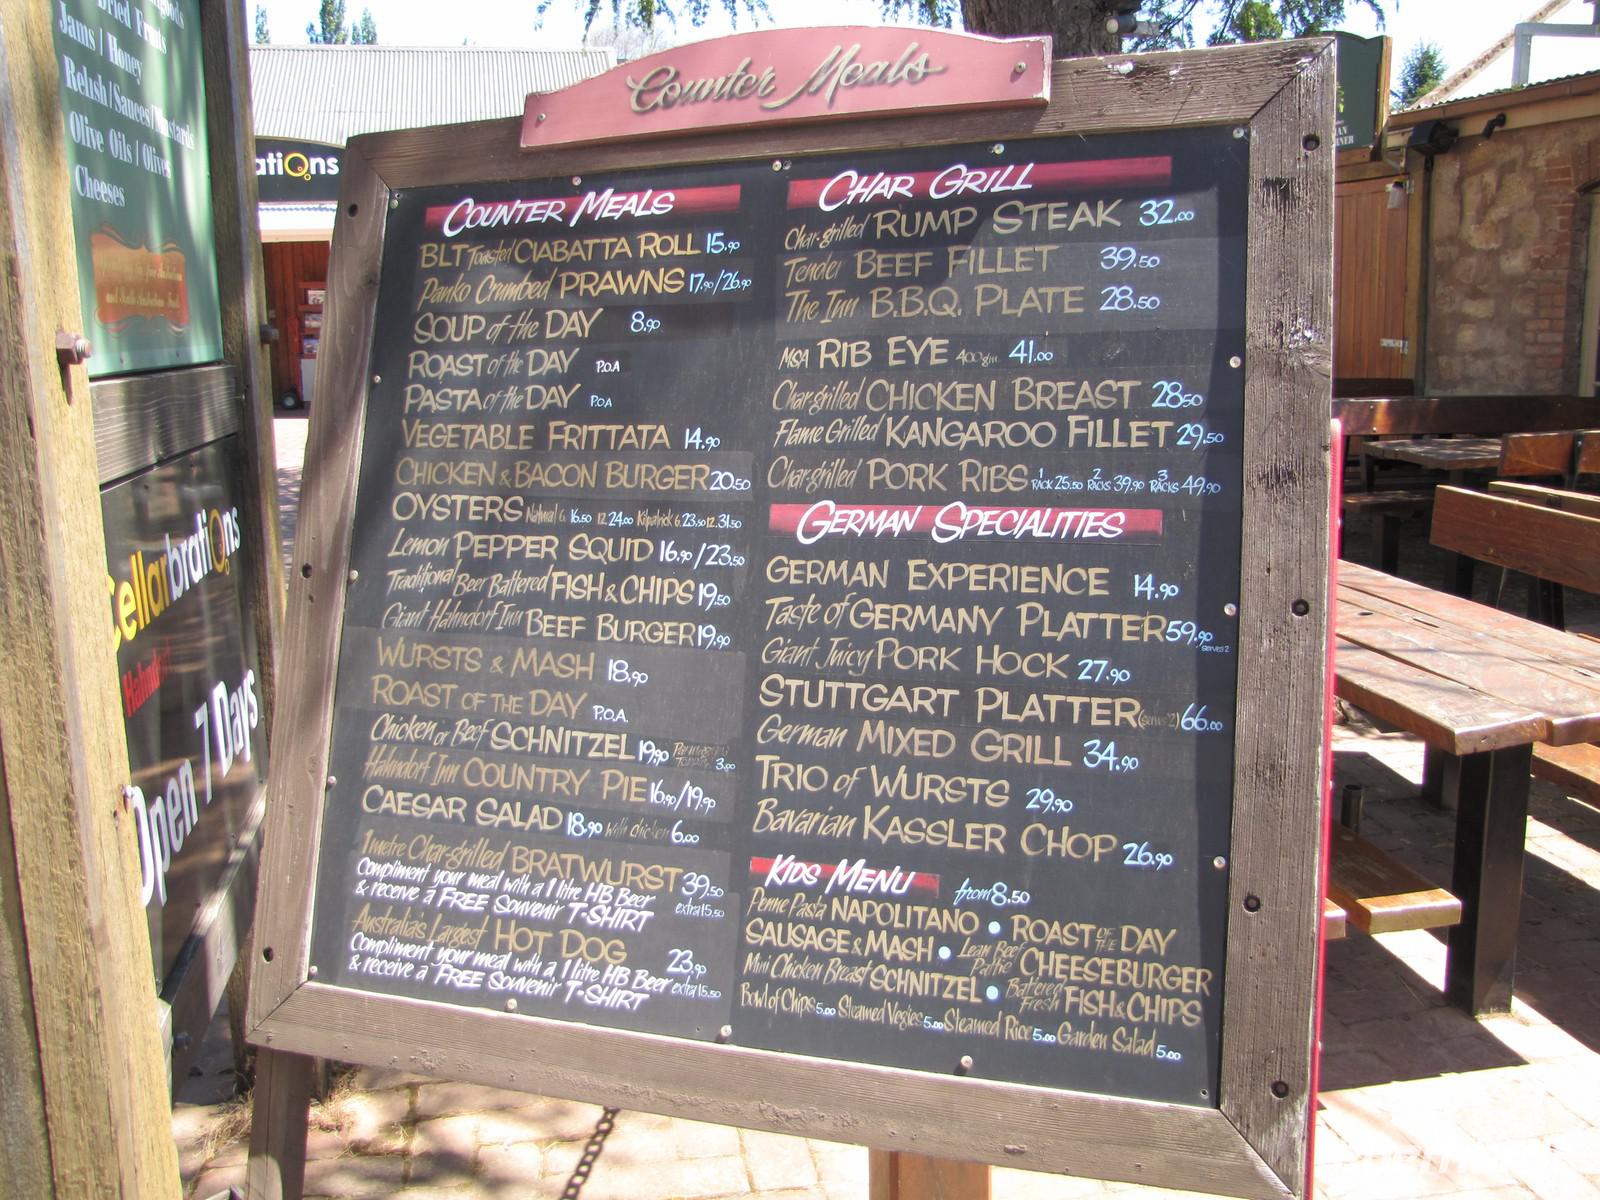 Dried Fruits
Jams / Honey
Relish / Sauces / Mustards
Olive Oils / Olives
Cheeses
atiOns
Cellarbrations
Open 7 Days
Counter Meals
COUNTER MEALS
BLT Toasted CIABATTA ROLL 15.90
Panko Crumbed PRAWNS 17.90/26.90
SOUP of the DAY 8.90
ROAST of the DAY P.O.A
PASTA of the DAY P.O.A
VEGETABLE FRITTATA 14.90
CHICKEN & BACON BURGER 20.50
OYSTERS Natural 6 16.50 12 24.00 Kilpatrick 6 23.50 12 31.50
Lemon PEPPER SQUID 16.90/23.50
Traditional Beer Battered FISH & CHIPS 19.50
Giant Hahndorf Inn BEEF BURGER 19.90
WURSTS & MASH 18.90
ROAST OF THE DAY P.O.A.
Chicken or Beef SCHNITZEL 19.90 Parmigana Topping 3.90
Hahndorf Inn COUNTRY PIE 16.90/19.90
CAESAR SALAD 18.90 with chicken 6.00
1 metre Char-grilled BRATWURST 39.50
Compliment your meal with a 1 litre HB Beer extra 15.50
& receive a FREE Souvenir T-SHIRT
Australia's Largest HOT DOG 23.90
Compliment your meal with a 1 litre HB Beer extra 15.50
& receive a FREE Souvenir T-SHIRT
CHAR GRILL
Char-grilled RUMP STEAK 32.00
Tender BEEF FILLET 39.50
The Inn B.B.Q. PLATE 28.50
MSA RIB EYE 400gm 41.00
Char-grilled CHICKEN BREAST 28.50
Flame Grilled KANGAROO FILLET 29.50
Char-grilled PORK RIBS 1 RACK 25.50 2 RACKS 39.90 3 RACKS 49.90
GERMAN SPECIALITIES
GERMAN EXPERIENCE 14.90
Taste of GERMANY PLATTER 59.90 serves 2
Giant Juicy PORK HOCK 27.90
STUTTGART PLATTER (serves 2) 66.00
German MIXED GRILL 34.90
TRIO of WURSTS 29.90
Bavarian KASSLER CHOP 26.90
KIDS MENU from 8.50
Penne Pasta NAPOLITANO • ROAST OF THE DAY
SAUSAGE & MASH • Lean Beef Pattie CHEESEBURGER
Mini Chicken Breast SCHNITZEL • Battered Fresh FISH & CHIPS
Bowl of Chips 5.00 Steamed Vegies 5.00 Steamed Rice 5.00 Garden Salad 5.00